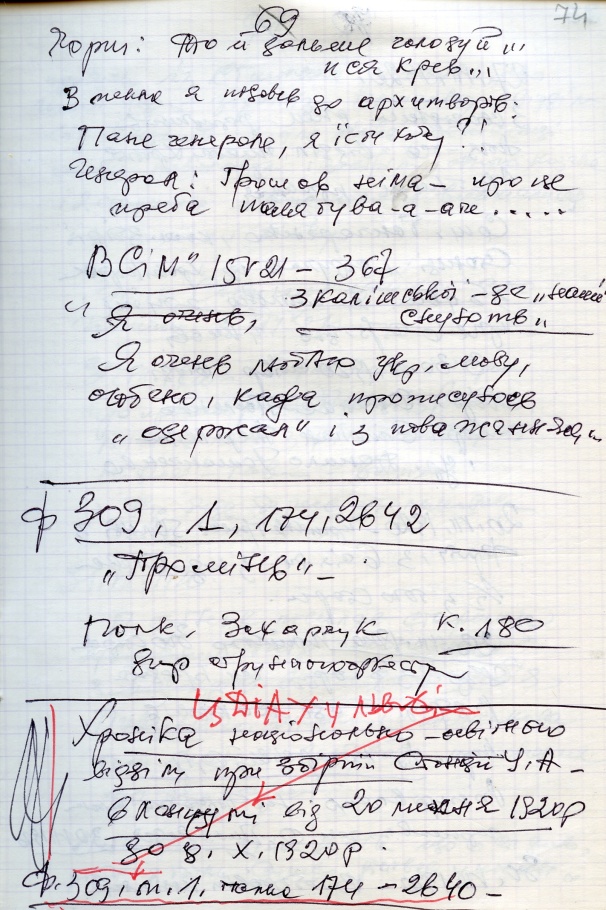 69
74
Хори: То й дальше голодуй...
и ся крев...
В мене я подовв до архитворів:
Пане генерале, я їсти хочу?!
Генерал: Грошов нема – про це
треба памятува-а-ати.....
ВСіМ" 15V21 – 367
Я очень, З каліської – за „наші
Я очень люблю укр, мову,
особено, кагда прописуєв
„одержал" і з поважаннєм"
ф 309, 1, 174, 2642
„Промінь" –
Полк, Захарчук к. 180
дир струнного оркестру
ЦДІАУ у Львові
Хроніка національно-освітного
відділу при збірній Станції У.А –
в Ланцуті від 20 1920р
до д. X. 1920р.
Ф. 309, оп. 1, папка 174 – 2640 –